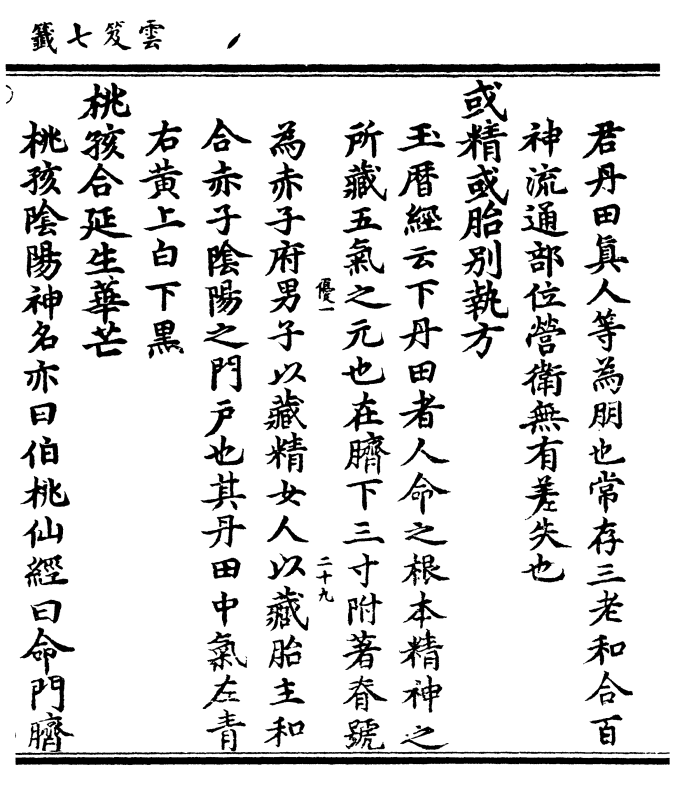 雲笈七籤
君丹田真人等為朋也常存三老和合百
神流通部位營衛無有差失也
或精或胎別執方
玉曆經云下丹田者人命之根本精神之
所藏五氣之元也在臍下三寸附著脊號
優一
二十九
為赤子府男子以藏精女人以藏胎主和
合赤子陰陽之門戶也其丹田中氣左青
右黃上白下黑
桃孩合延生華芒
桃孩陰陽神名亦曰伯桃仙經曰命門臍